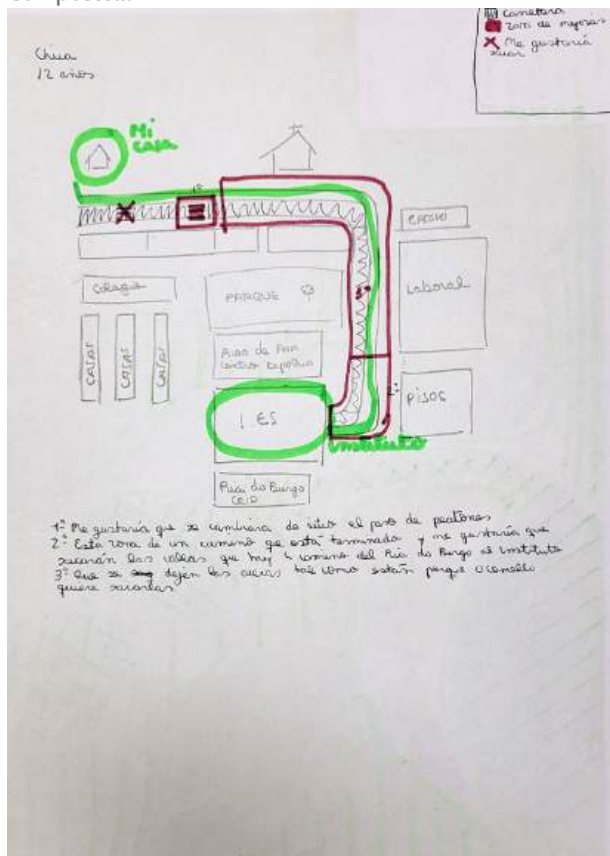 Carretera
Zona de mejoras
Me gustaría
12 años
Mi
casa
1º
Colegio
PARQUE
Laboral
CASAS
CASAS
CASAS
Centro
2º
PISOS
IES
instituto
Ría do Burgo
CEIP
1º Me gustaría que se cambiara de sitio el paso de peatones
2º Esta zona de un camino que está terminado y me gustaría que
sacarán las vallas que hay camino del Ría do Burgo al instituto
3º Que se dejen las tal como están porque O concello
quiere sacarlas